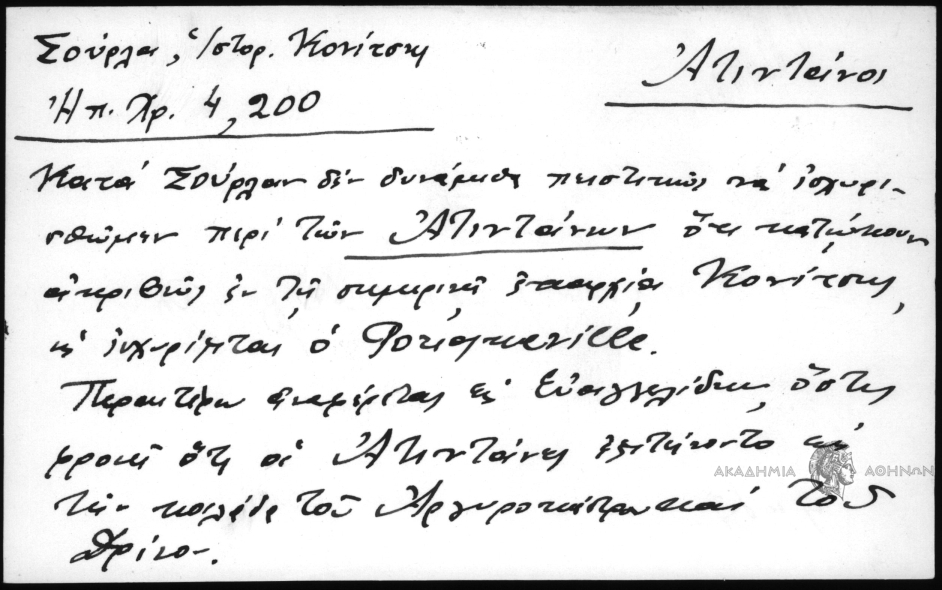 Σούρλα, Ἱστορ. Κονίτσης
Ἠπ. Χρ. 4, 200
Ἀτιντᾶνοι
Κατά Σούρλαν δέν δυνάμεθα πειστικῶς νά ἰσχυρι-
σθῶμεν περί τῶν Ἀτιντάνων ὅτι κατῴκουν
ἀκριβῶς ἐν τῇ σημερινῇ ἐπαρχίᾳ Κονίτσης,
ὡς ἰσχυρίζεται ὁ Pouqueville.
Περαιτέρω ἀναφέρεται εἰς Εὐαγγελίδην, ὅστις
φρονεῖ ὅτι οἱ Ἀτιντᾶνες ἐξετείνοντο εἰς
τήν κοιλάδα τοῦ Ἀργυροκάστρου καί τοῦ
Δρίνου.
ΑΚΑΔΗΜΙΑ ΑΘΗΝΩΝ